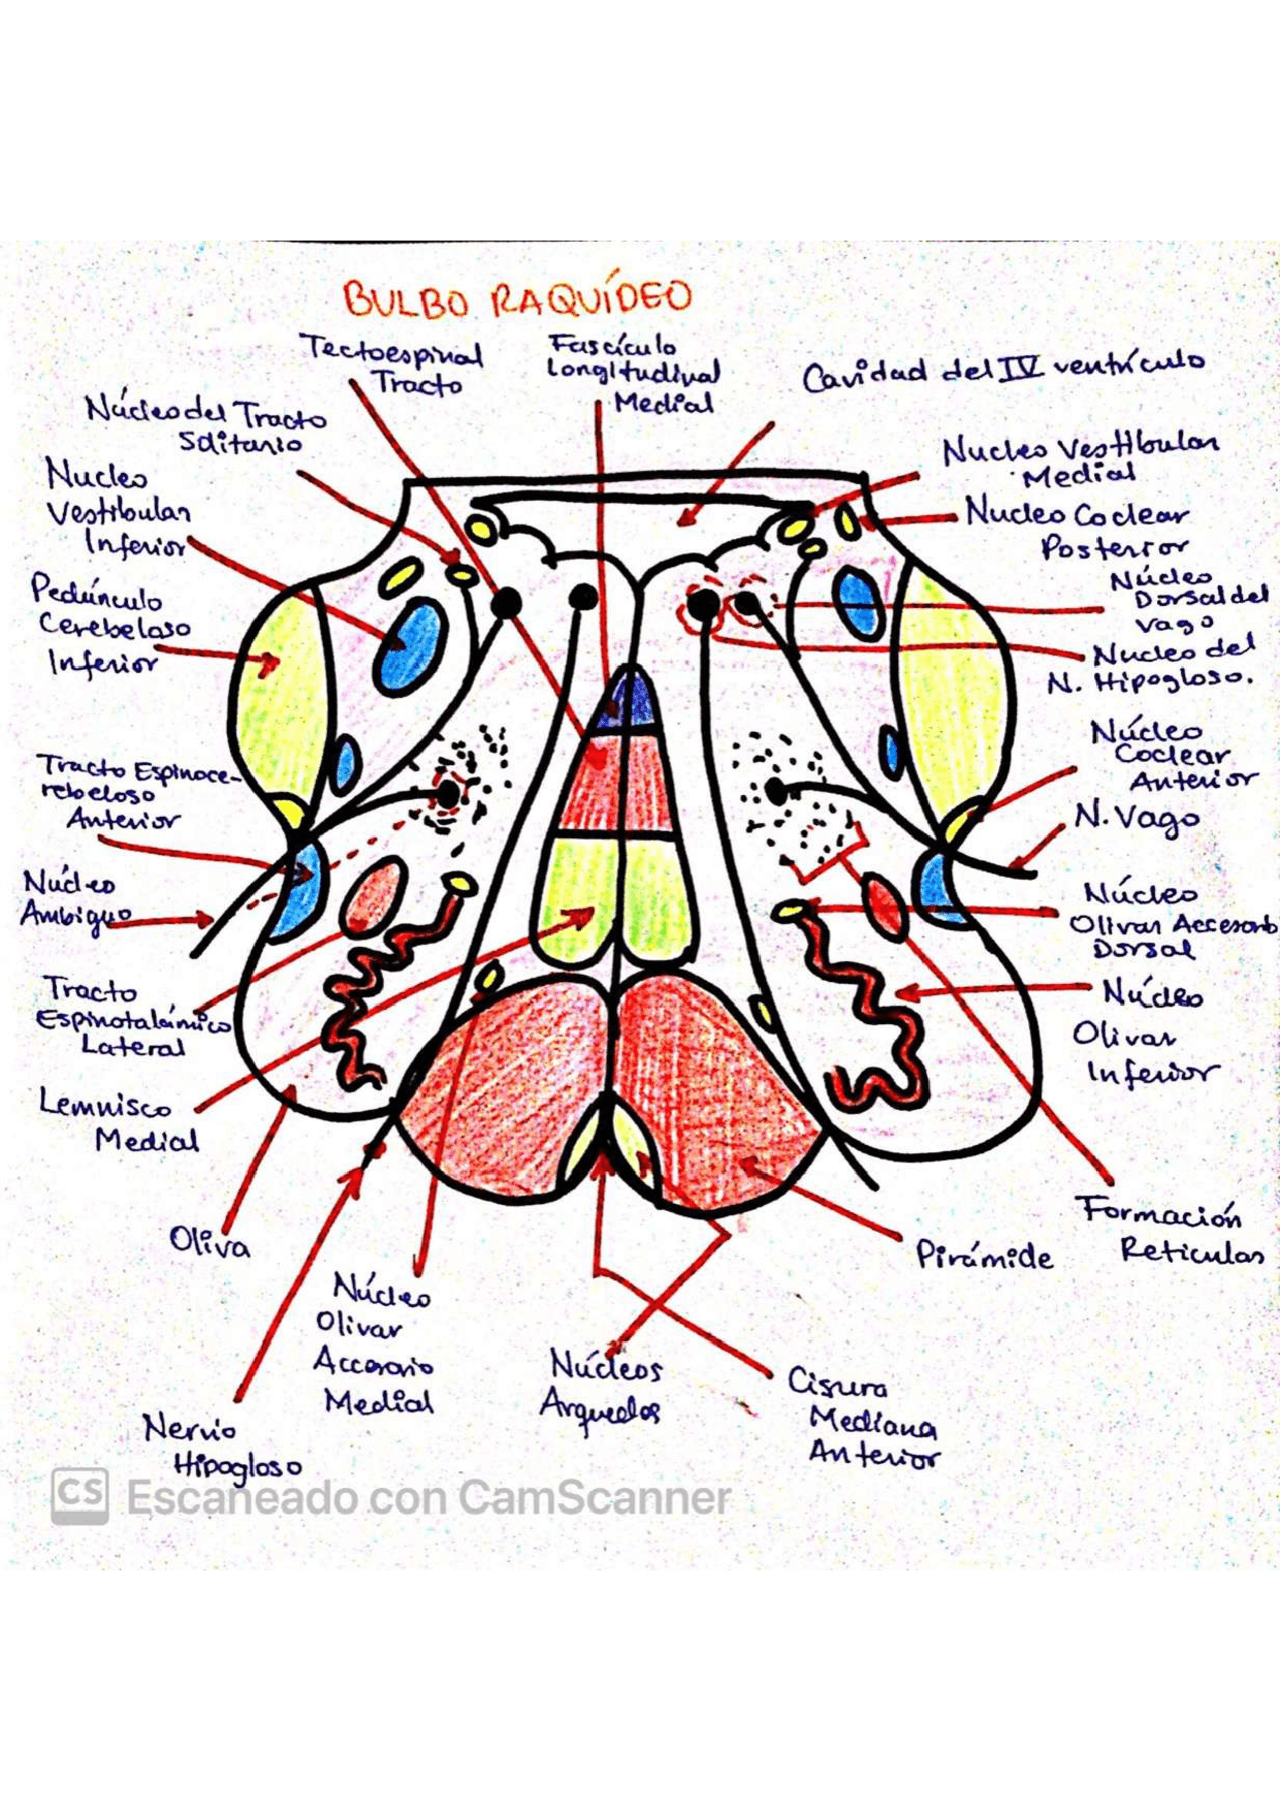 BULBO RAQUÍDEO
Tectoespinal
Tracto
Fascículo
Longitudinal
Medial
Cavidad del IV ventrículo
Núcleo del Tracto
Solitario
Nucleo
Vestibular
Inferior
Pedúnculo
Cerebeloso
Inferior
Tracto Espinoce-
rebeloso
Anterior
Núcleo
Ambiguo
Tracto
Espinotalámico
Lateral
Lemnisco
Medial
Oliva
Nervio
Hipogloso
Núcleo
Olivar
Accesorio
Medial
Núcleos
Arqueados
Cisura
Mediana
Anterior
Pirámide
Formación
Reticular
Nucleo Vestibular
Medial
Nucleo Coclear
Posterior
Núcleo
Dorsal del
Vago
Nucleo del
N. Hipogloso.
Núcleo
Coclear
Anterior
N. Vago
Núcleo
Olivar Accesorio
Dorsal
Núcleo
Olivar
Inferior
CS Escaneado con CamScanner